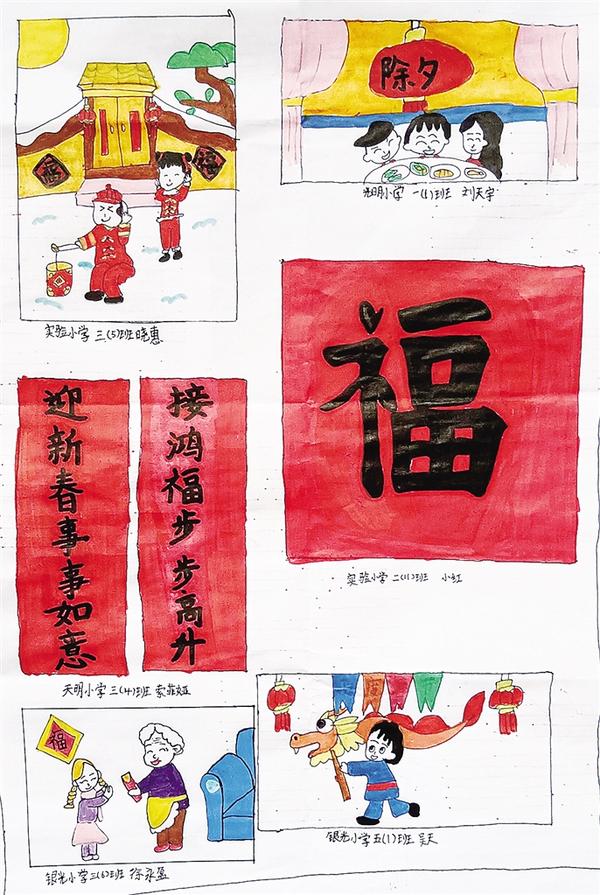 福
福
实验小学 三(5)班 晓惠
除夕
光明小学 一(1)班 刘天宇
福
实验小学 二(1)班 小红
接鸿福步步高升
迎新春事事如意
天明小学 三(4)班 索菲娅
福
银光小学三(6)班 徐永盈
银光小学五(1)班 吴天